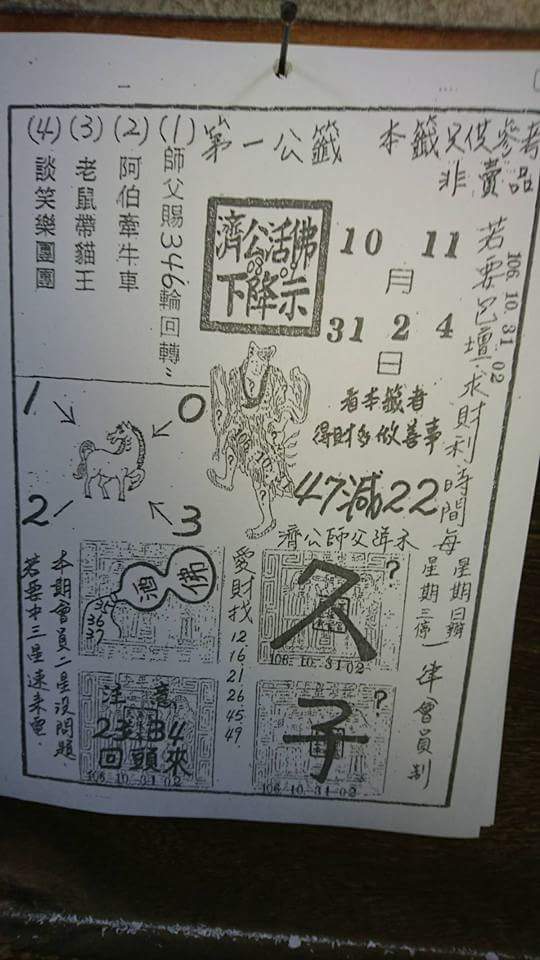 第一公籤
本籤只供參考
非賣品
(1)師父賜346輪回轉"
(2)阿伯牽牛車
(3)老鼠帶貓王
(4)談笑樂團團
濟公活佛
下降示
10 11
月
31 2 4
日
106.10.31 02
求財利時間每
星期日辦
星期三停
一律(會員制
看本籤者
得財多做善事
47減22
1
0
2
3
濟公師父降示
佛
35
36
37
愛財找
12
16
21
26
45
49
久
?
106.10.31 02
子
?
106.10.31 02
注意
23 34
回頭來
106.10.31 02
本期會員二星沒問題
若要中三星速來電